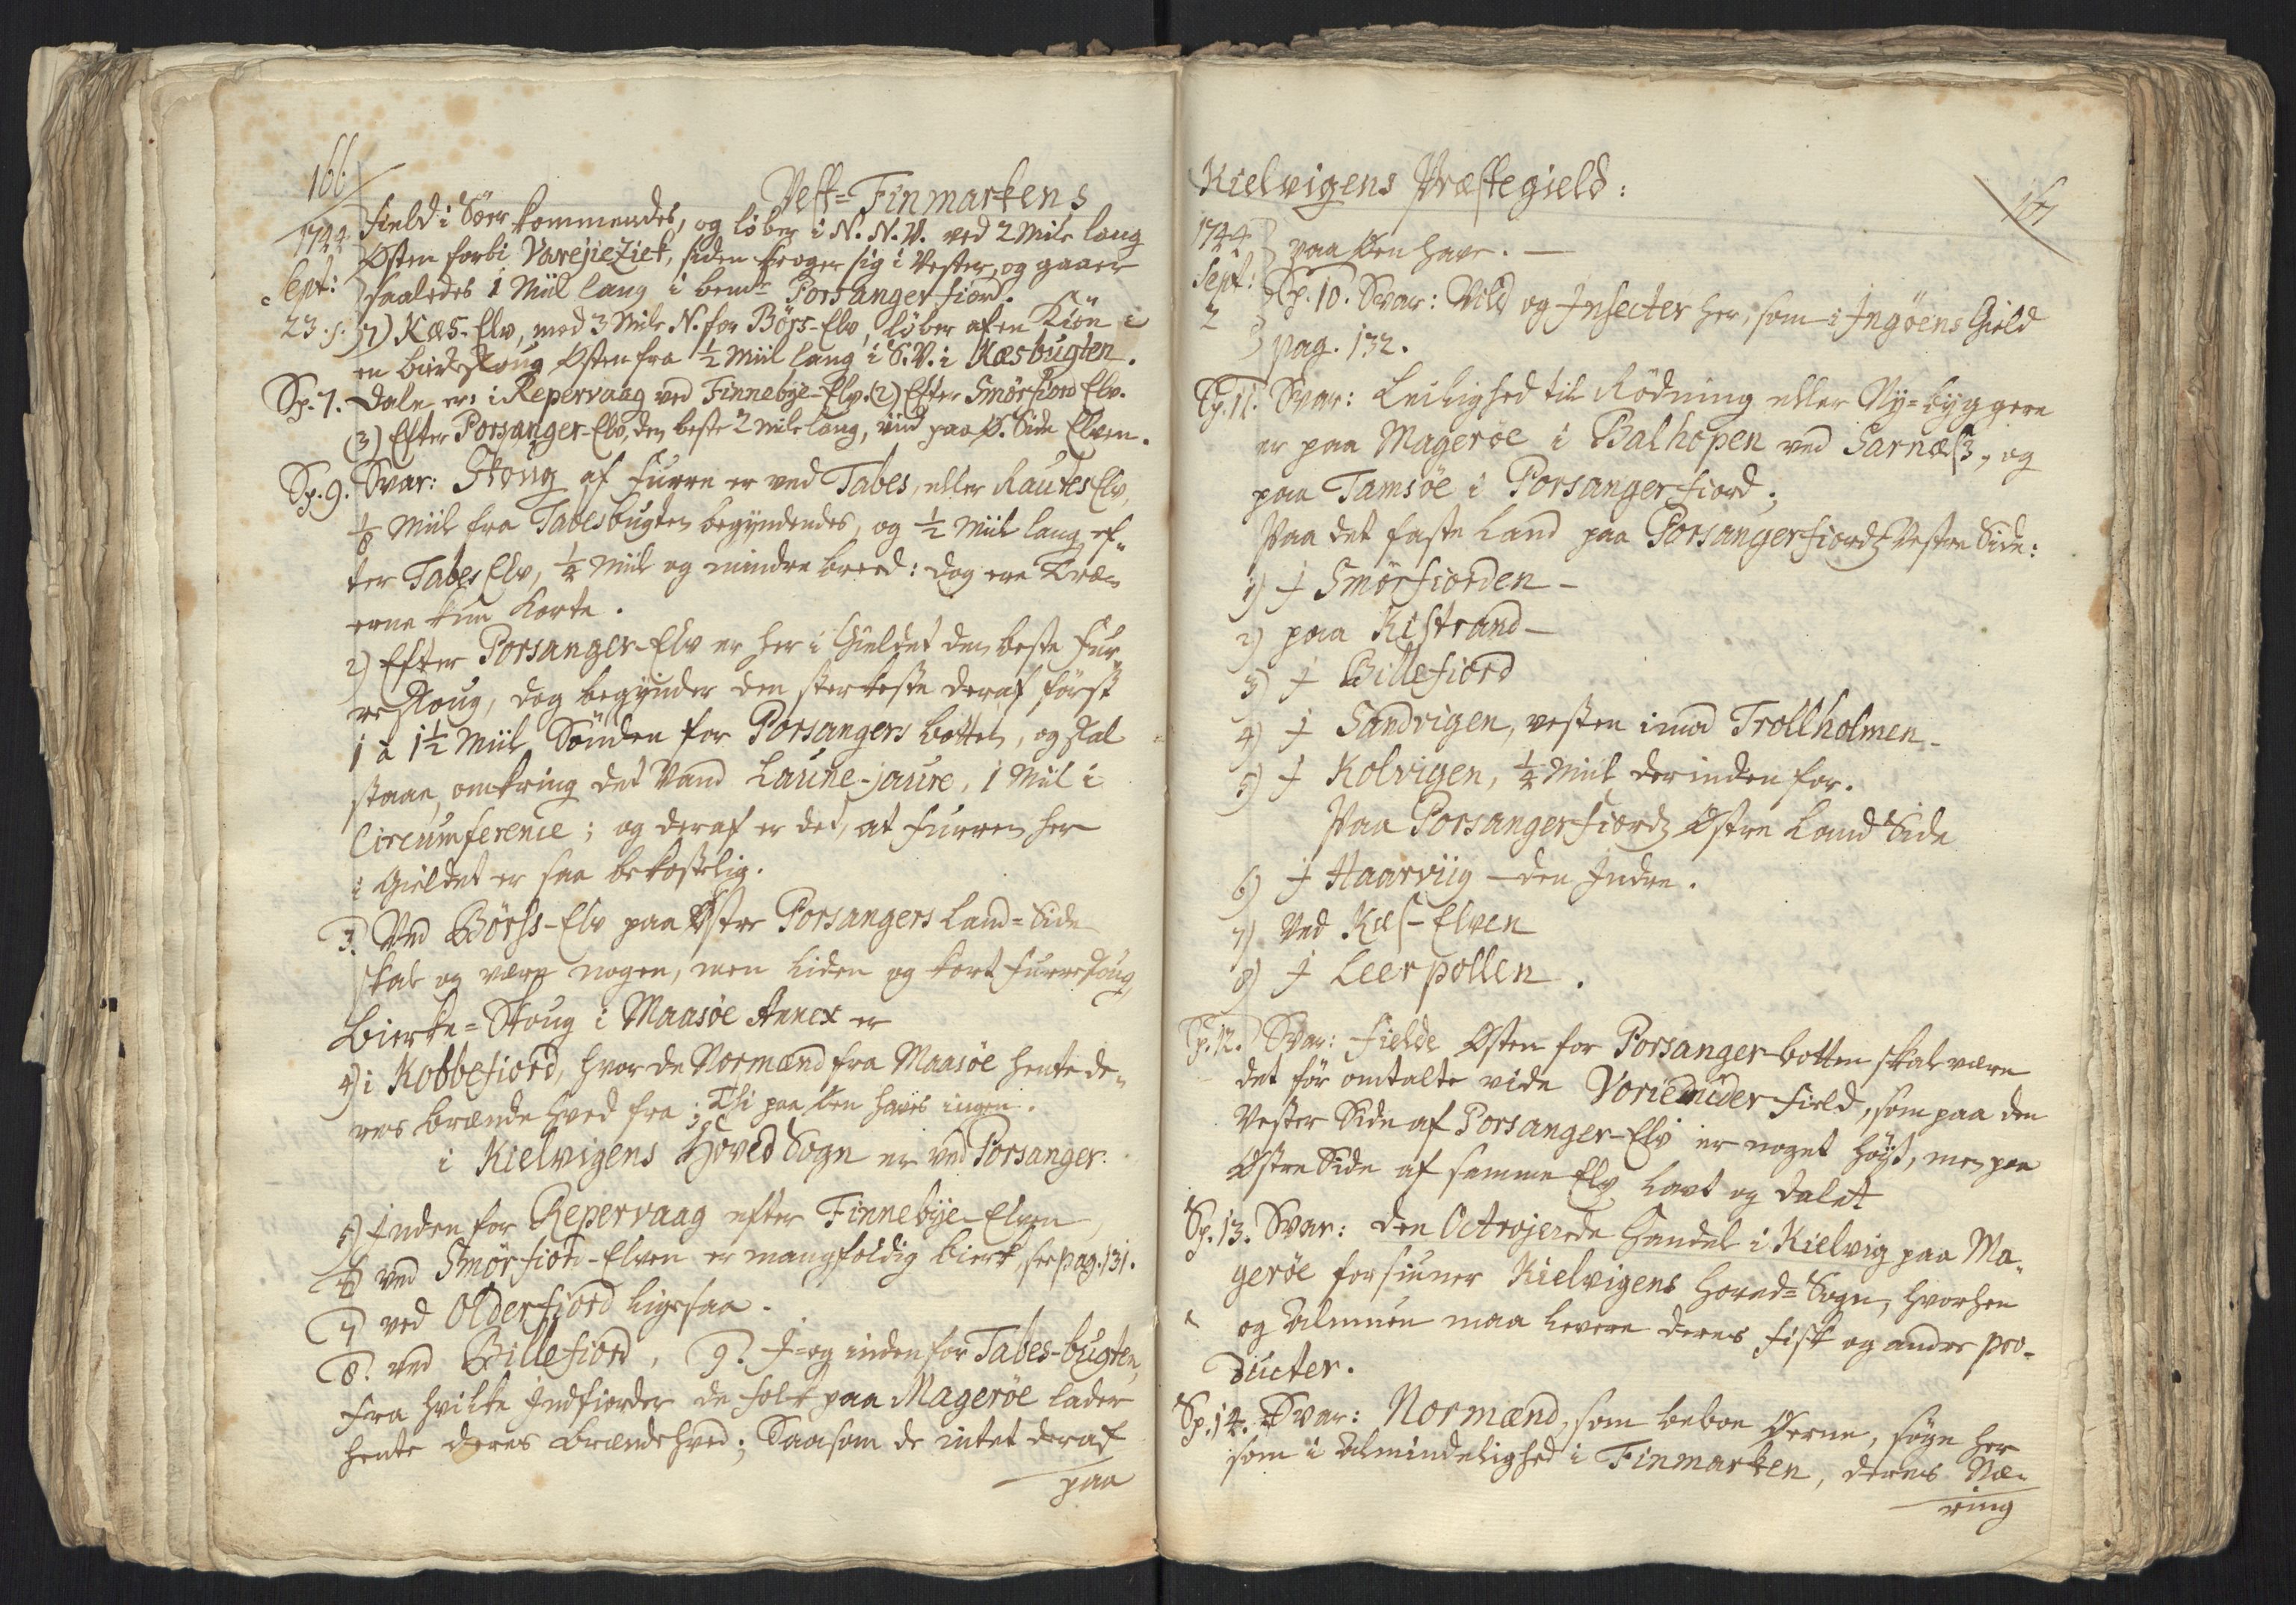 166
Vest-Finmarkens
1744. Field i Sör kommendes, og löber i N. N. V. ved 2 Mile lang
Östen forbi Varejieziek, siden kroger sig i Vester, og gaaer
Sept: saaledes 1 Miil lang i bemte Porsanger fiord.
23. 7) Kæs-Elv, med 3 Mile N. for Börs-Elv, löber af en Kiön i
en birkeskoug Östen fra 1/2 Miil lang i S. V. i Kæsbugten.
Sp. 7. Dale er: i Repervaag ved Finnebye-Elv. (2) Efter Smörfiord Elv.
(3) Efter Porsanger-Elv, den beste 2 Mile lang, iind paa Ö. Side Elven.
Sp. 9. Svar: Skoug af Furre er ved Tabes, eller Rautes Elv,
1/8 Miil fra Tabesbugten begyndendes, og 1/2 Miil lang ef-
ter Tabes Elv, 1/4 Miil og mindre breed: dog ere Træ-
erne kun korte.
2) Efter Porsanger-Elv er her i Gieldet den beste Fur-
reskoug, dog begynder den sterkeste deraf först
1 à 1 1/2 Miil Sönden for Porsangers botten, og skal
staae omkring det Vand Laune-jaure, 1 Miil i
Circumference; og deraf er det, at Furren her
i Gieldet er saa bekostelig.
3. Ved Börss-Elv paa Östre Porsangers Land-Side
skal og være nogen, men liden og kort Furreskoug,
Birke-Skoug i Maasöe Annex er
4) i Kobbefiord, hvor de Normænd fra Maasöe hente de-
res brænde hved fra; Thi paa Öen haves ingen.
i Kielvigens Hoved Sogn er ved Porsanger:
5) Inden for Repervaag efter Finnebye-Elven,
6) ved Smörfiord-Elven er mangfoldig birk, see pag. 131.
7) ved Olderfiord ligesaa.
8. ved Billefiord, 9. J- og inden for Tabes-bugten,
fra hvilke Indfiorder de folk paa Magerøe lader
hente deres brændehved; Saasom de intet deraf
paa
Kielvigens Præstegield:
167
1744 paa Öen have. —
Sept: Sp. 10. Svar: Vild og Insecter her, som i Ingöens Gield
2 pag. 132.
Sp. 11. Svar: Leilighed til Rödning eller Ny-byggere
er paa Magerøe i Balhopen ved Sarnæss, og
paa Tamsöe i Porsanger fiord;
Paa det faste Land paa Porsangerfiords Vestre Side:
1) J Smörfiorden —
2) paa Kistrand —
3) J Billefiord
4) J Sandvigen, vesten imod Trollholmen —
5) J Kolvigen, 1/4 Miil derinden for.
Paa Porsangerfiords Östre Land Side
6) J Haarviig — den Indre.
7) Ved Kæs-Elven
8) J Leerpollen.
Sp. 12. Svar: Fielde Östen for Porsanger-botten skal være
det för omtalte vide Vorieduder field, som paa den
Vester Side af Porsanger-Elv er noget höyt, men paa
Östre Side af samme Elv lavt og dalet
Sp. 13. Svar: Den Octrojerede Handel i Kielvig paa Ma-
geröe forsiuner Kielvigens Hoved-Sogn, hvorhen
og Almuen maa levere deres Fisk og andre pro-
ducter.
Sp. 14. Svar: Normænd, som beboe Öerne, söge her
som i Almindelighed i Finmarken, deres Næ-
ring